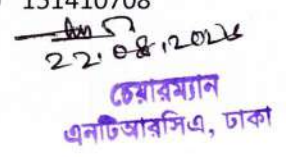 131410708
22.08.2024
চেয়ারম্যান
এনটিআরসিএ, ঢাকা